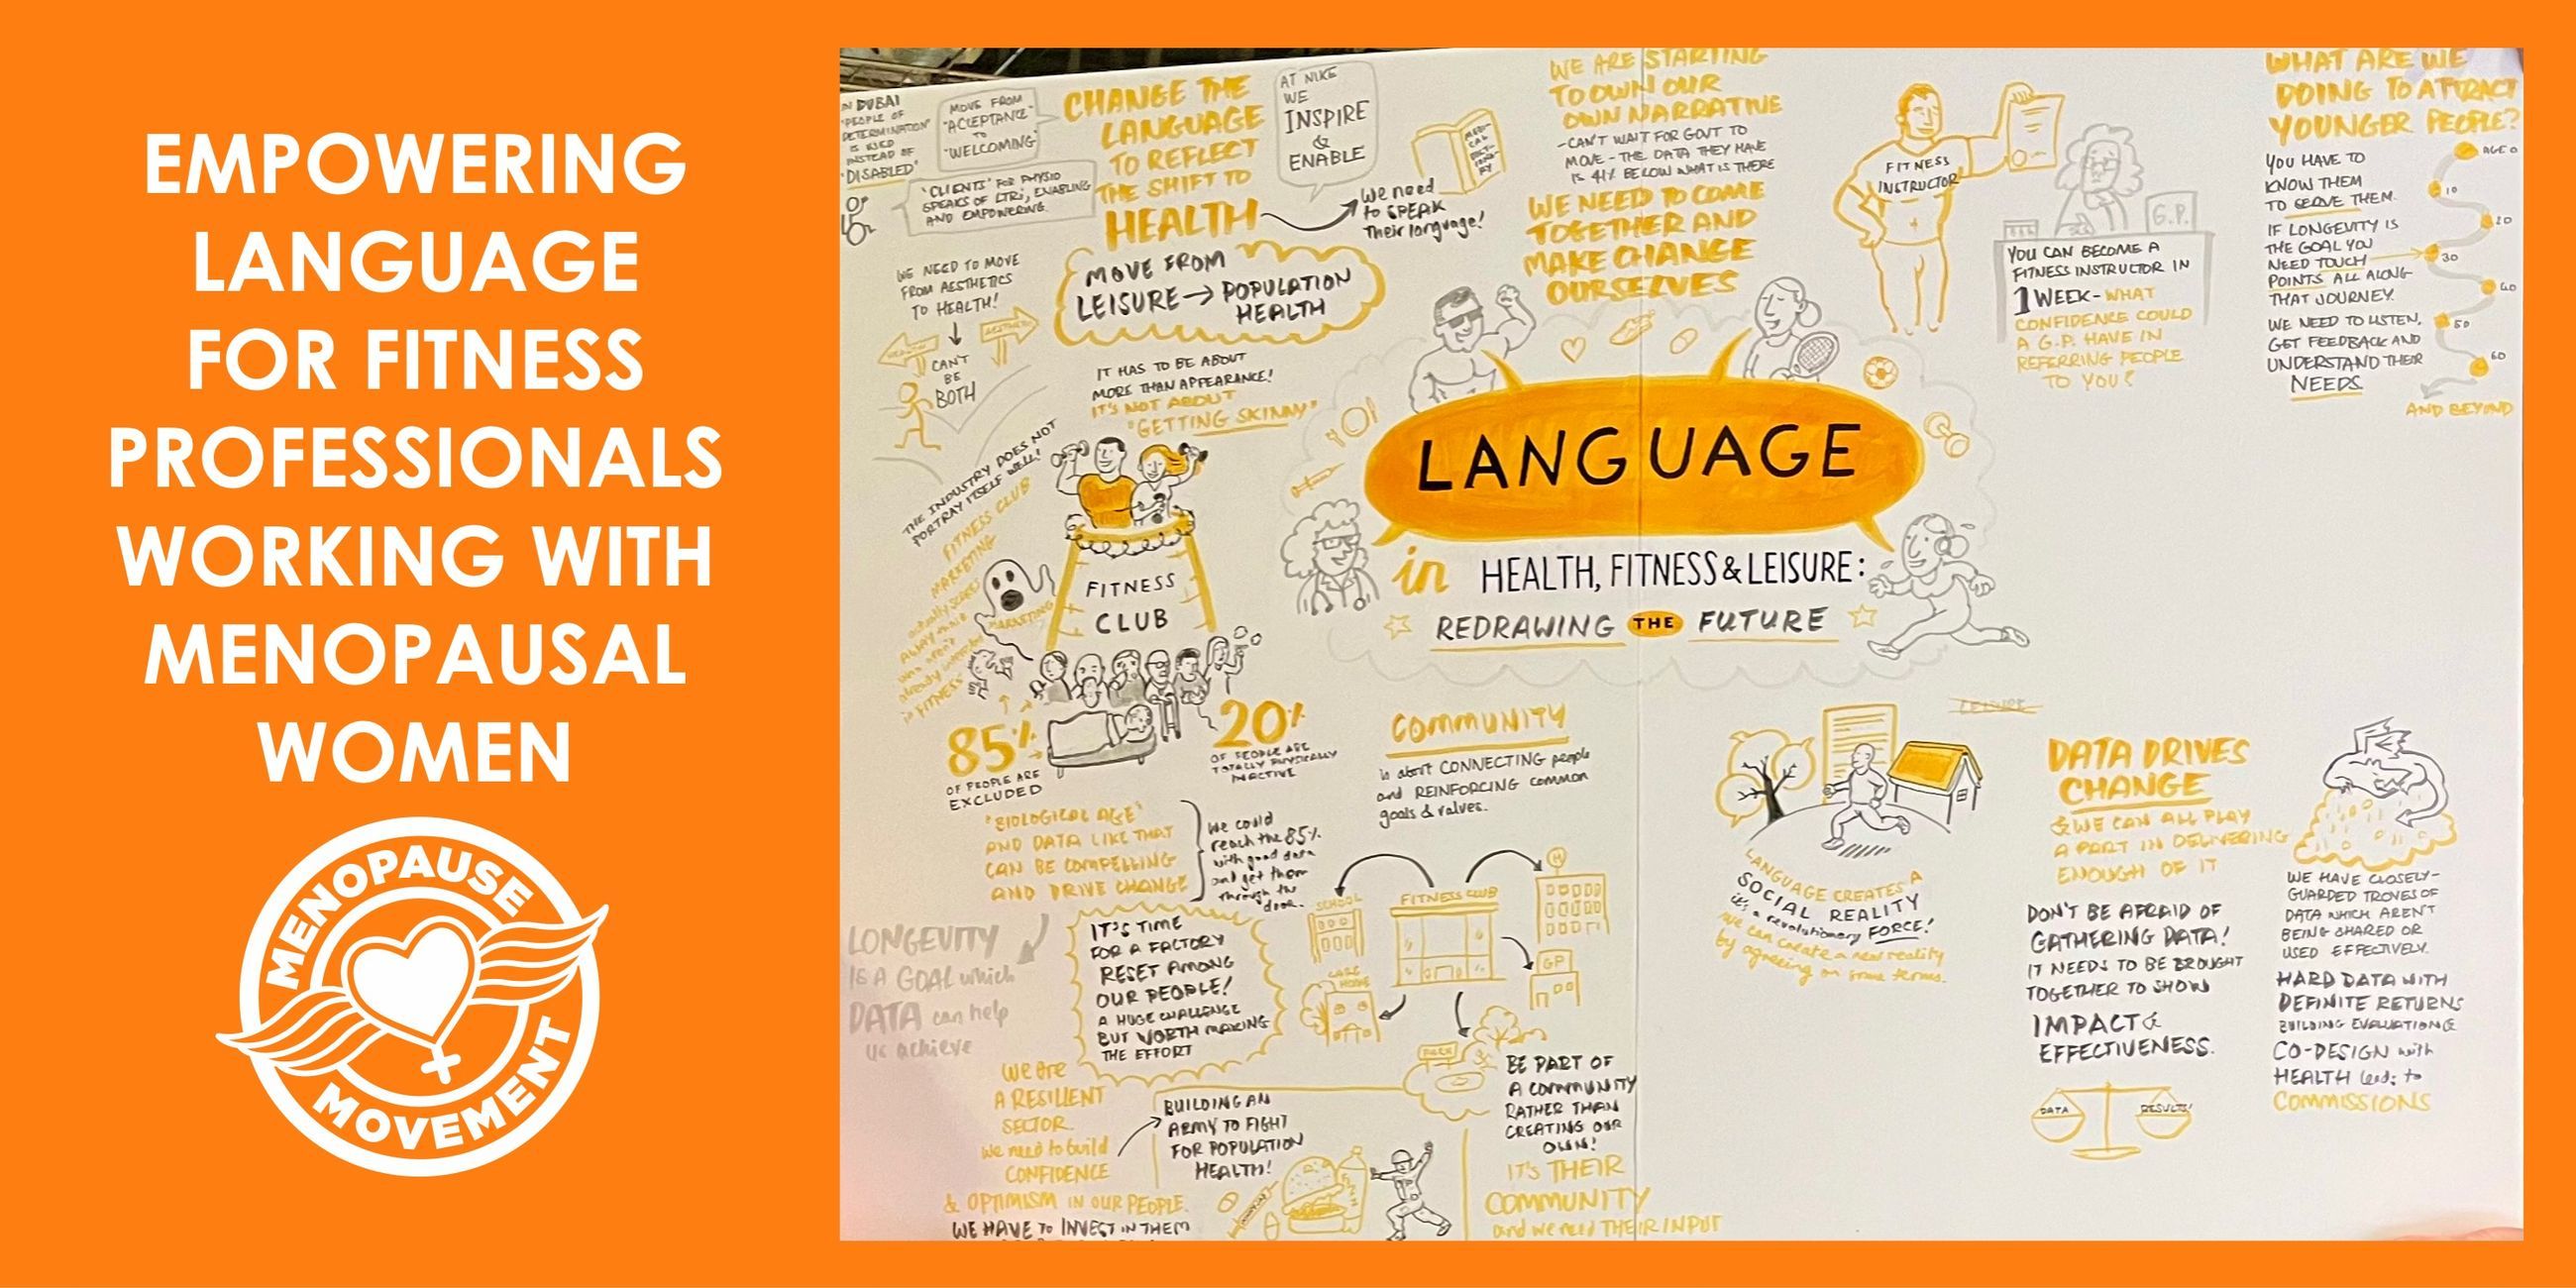 EMPOWERING
LANGUAGE
FOR FITNESS
PROFESSIONALS
WORKING WITH
MENOPAUSAL
WOMEN
MENOPAUSE
MOVEMENT
IN DUBAI
"PEOPLE OF
DETERMINATION"
IS USED
INSTEAD OF
"DISABLED"
MOVE FROM
"ACCEPTANCE"
TO
"WELCOMING"
'CLIENTS' FOR PHYSIO
SPEAKS OF LTR; ENABLING
AND EMPOWERING.
CHANGE THE
LANGUAGE
TO REFLECT
THE SHIFT TO
HEALTH
AT NIKE
WE
INSPIRE
&
ENABLE
we need
to SPEAK
their language!
MEDI-
CAL
DICT-
IONA-
RY
WE NEED TO MOVE
FROM AESTHETICS
TO HEALTH!
HEALTH
AESTHETICS
CAN'T
BE
BOTH
MOVE FROM
LEISURE → POPULATION
HEALTH
IT HAS TO BE ABOUT
MORE THAN APPEARANCE!
IT'S NOT ABOUT
"GETTING SKINNY"
WE ARE STARTING
TO OWN OUR
OWN NARRATIVE
- CAN'T WAIT FOR GOVT TO
MOVE - THE DATA THEY HAVE
IS 41% BELOW WHAT IS THERE
WE NEED TO COME
TOGETHER AND
MAKE CHANGE
OURSELVES
FITNESS
INSTRUCTOR
G.P.
YOU CAN BECOME A
FITNESS INSTRUCTOR IN
1 WEEK - WHAT
CONFIDENCE COULD
A G.P. HAVE IN
REFERRING PEOPLE
TO YOU?
WHAT ARE WE
DOING TO ATTRACT
YOUNGER PEOPLE?
YOU HAVE TO
KNOW THEM
TO SERVE THEM.
IF LONGEVITY IS
THE GOAL YOU
NEED TOUCH
POINTS ALL ALONG
THAT JOURNEY.
WE NEED TO LISTEN,
GET FEEDBACK AND
UNDERSTAND THEIR
NEEDS.
AGE 0
10
20
30
40
50
60
AND BEYOND
LANGUAGE
in HEALTH, FITNESS & LEISURE:
REDRAWING THE FUTURE
THE INDUSTRY DOES NOT
PORTRAY ITSELF WELL!
FITNESS CLUB
MARKETING
actually scares
away those
who aren't
already interested
in FITNESS
MARKETING
FITNESS
CLUB
85%
OF PEOPLE ARE
EXCLUDED
20%
OF PEOPLE ARE
TOTALLY PHYSICALLY
INACTIVE
"BIOLOGICAL AGE"
AND DATA LIKE THAT
CAN BE COMPELLING
AND DRIVE CHANGE
We could
reach the 85%
with good data
and get them
through the
door.
LONGEVITY
IS A GOAL which
DATA can help
us achieve
IT'S TIME
FOR A FACTORY
RESET AMONG
OUR PEOPLE!
A HUGE CHALLENGE
BUT WORTH MAKING
THE EFFORT
We are
A RESILIENT
SECTOR.
We need to build
CONFIDENCE
& OPTIMISM IN OUR PEOPLE.
WE HAVE TO INVEST IN THEM
BUILDING AN
ARMY TO FIGHT
FOR POPULATION
HEALTH!
COMMUNITY
is about CONNECTING people
and REINFORCING common
goals & values.
SCHOOL
FITNESS CLUB
H
CARE
HOME
GP
PARK
BE PART OF
A COMMUNITY
RATHER THAN
CREATING OUR
OWN!
IT'S THEIR
COMMUNITY
and we need THEIR INPUT
LEISURE
LANGUAGE CREATES A
SOCIAL REALITY
it's a revolutionary FORCE!
We can create a new reality
by agreeing on some terms.
DATA DRIVES
CHANGE
& WE CAN ALL PLAY
A PART IN DELIVERING
ENOUGH OF IT
DON'T BE AFRAID OF
GATHERING DATA!
IT NEEDS TO BE BROUGHT
TOGETHER TO SHOW
IMPACT &
EFFECTIVENESS.
DATA
RESULTS!
WE HAVE CLOSELY-
GUARDED TROVES OF
DATA WHICH AREN'T
BEING SHARED OR
USED EFFECTIVELY.
HARD DATA WITH
DEFINITE RETURNS
BUILDING EVALUATION &
CO-DESIGN with
HEALTH leads to
COMMISSIONS